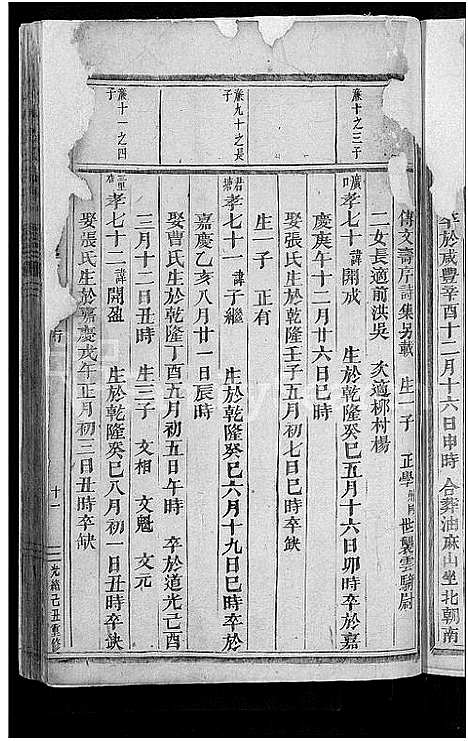 卒於咸豐辛酉十二月十六日申時 合葬油麻山坐北朝南
傳文壽序詩集另載 生一子 正學 世襲雲騎尉
二女長適前洪吳 次適梛村楊
廉十之三子
孝七十 諱開戒 生於乾隆癸巳五月十六日卯時卒於嘉
慶庚午十二月廿六日巳時
娶張氏生於乾隆壬子五月初七日巳時卒缺
生一子 正有
廉九十之長子
孝七十一 諱子繼 生於乾隆癸巳六月十九日巳時卒於
嘉慶乙亥八月廿一日辰時
娶曹氏生於乾隆丁酉五月初五日午時 卒於道光己酉
三月十二日丑時 生三子 文相 文魁 文元
廉十一之四子
孝七十二 諱開盈 生於乾隆癸巳八月初一日丑時卒缺
娶張氏生於嘉慶戊午正月初三日丑時卒缺
十一
光緒己丑重修